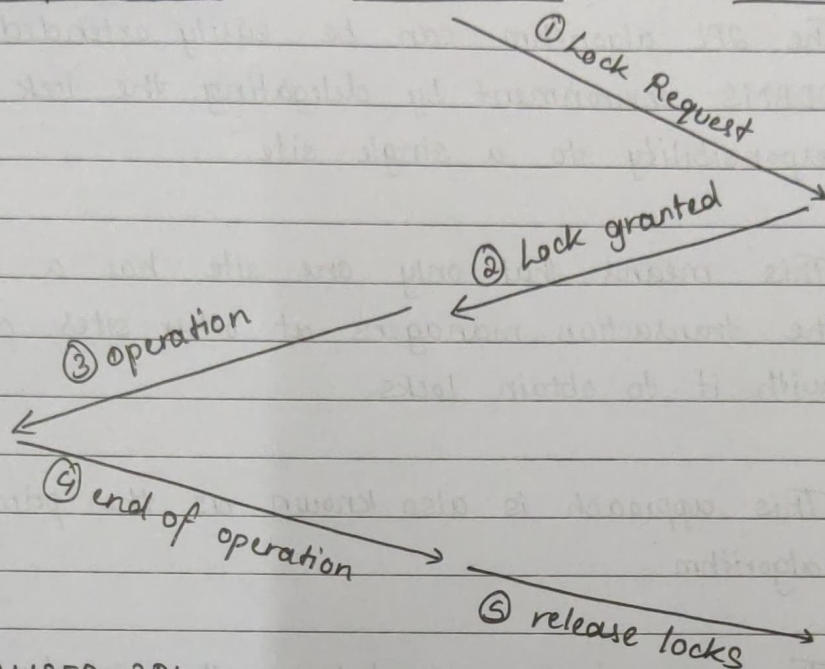 ① Lock Request
② Lock granted
③ operation
④ end of operation
⑤ release locks